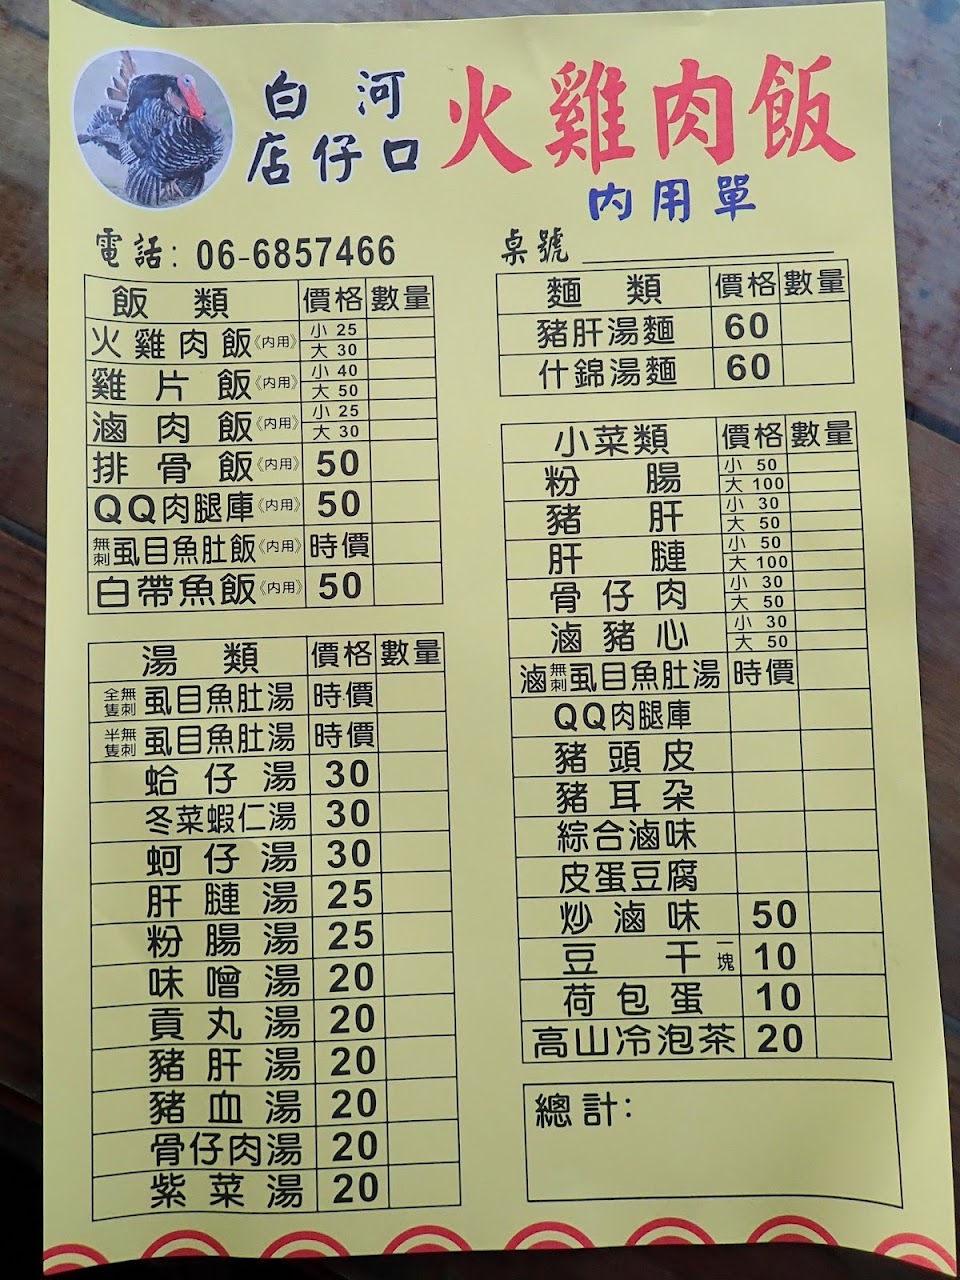 白河
店仔口
火雞肉飯
內用單
電話: 06-6857466
桌號
飯類 價格 數量
火雞肉飯《內用》 小 25 大 30
雞片飯《內用》 小 40 大 50
滷肉飯《內用》 小 25 大 30
排骨飯《內用》 50
QQ肉腿庫《內用》 50
無刺虱目魚肚飯《內用》 時價
白帶魚飯《內用》 50
湯類 價格 數量
全隻無刺虱目魚肚湯 時價
半隻無刺虱目魚肚湯 時價
蛤仔湯 30
冬菜蝦仁湯 30
蚵仔湯 30
肝腱湯 25
粉腸湯 25
味噌湯 20
貢丸湯 20
豬肝湯 20
豬血湯 20
骨仔肉湯 20
紫菜湯 20
麵類 價格 數量
豬肝湯麵 60
什錦湯麵 60
小菜類 價格 數量
粉腸 小 50 大 100
豬肝 小 30 大 50
肝腱 小 50 大 100
骨仔肉 小 30 大 50
滷豬心 小 30 大 50
滷無刺虱目魚肚湯 時價
QQ肉腿庫
豬頭皮
豬耳朵
綜合滷味
皮蛋豆腐
炒滷味 50
豆干一塊 10
荷包蛋 10
高山冷泡茶 20
總計: